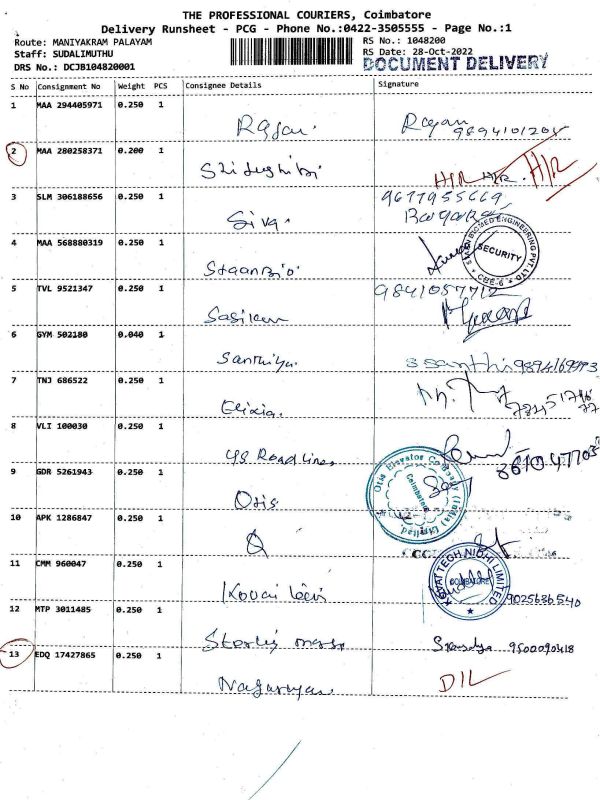 THE PROFESSIONAL COURIERS, Coimbatore
Delivery Runsheet - PCG - Phone No.:0422-3505555 - Page No.:1
Route: MANIYAKRAM PALAYAM
RS No.: 1048200
Staff: SUDALIMUTHU
RS Date: 28-Oct-2022
DRS No.: DCJB104820001
DOCUMENT DELIVERY
S No Consignment No Weight PCS Consignee Details Signature
1 MAA 294405971 0.250 1
Rajan. Rajan
9894101205
2 MAA 280258371 0.200 1
H/R H/R. H/R
3 SLM 306188656 0.250 1
9677955669
Siva.
4 MAA 568880319 0.250 1
SECURITY
CBE-6
Staanbio
5 TVL 9521347 0.250 1
9841057712
Sasikum
6 GYM 502180 0.040 1
Santhiya S Santhi 9894169993
7 TNJ 686522 0.250 1
Elixia.
8 VLI 100030 0.250 1
YS Roadlines
9 GDR 5261943 0.250 1
Otis Elevator Company (India) Limited
Coimbatore
Otis
10 APK 1286847 0.250 1
11 CMM 960047 0.250 1
KOVAI TECH NIDHI LIMITED
COIMBATORE
Kovai
9025636540
12 MTP 3011485 0.250 1
9500090418
13 EDQ 17427865 0.250 1
D/L